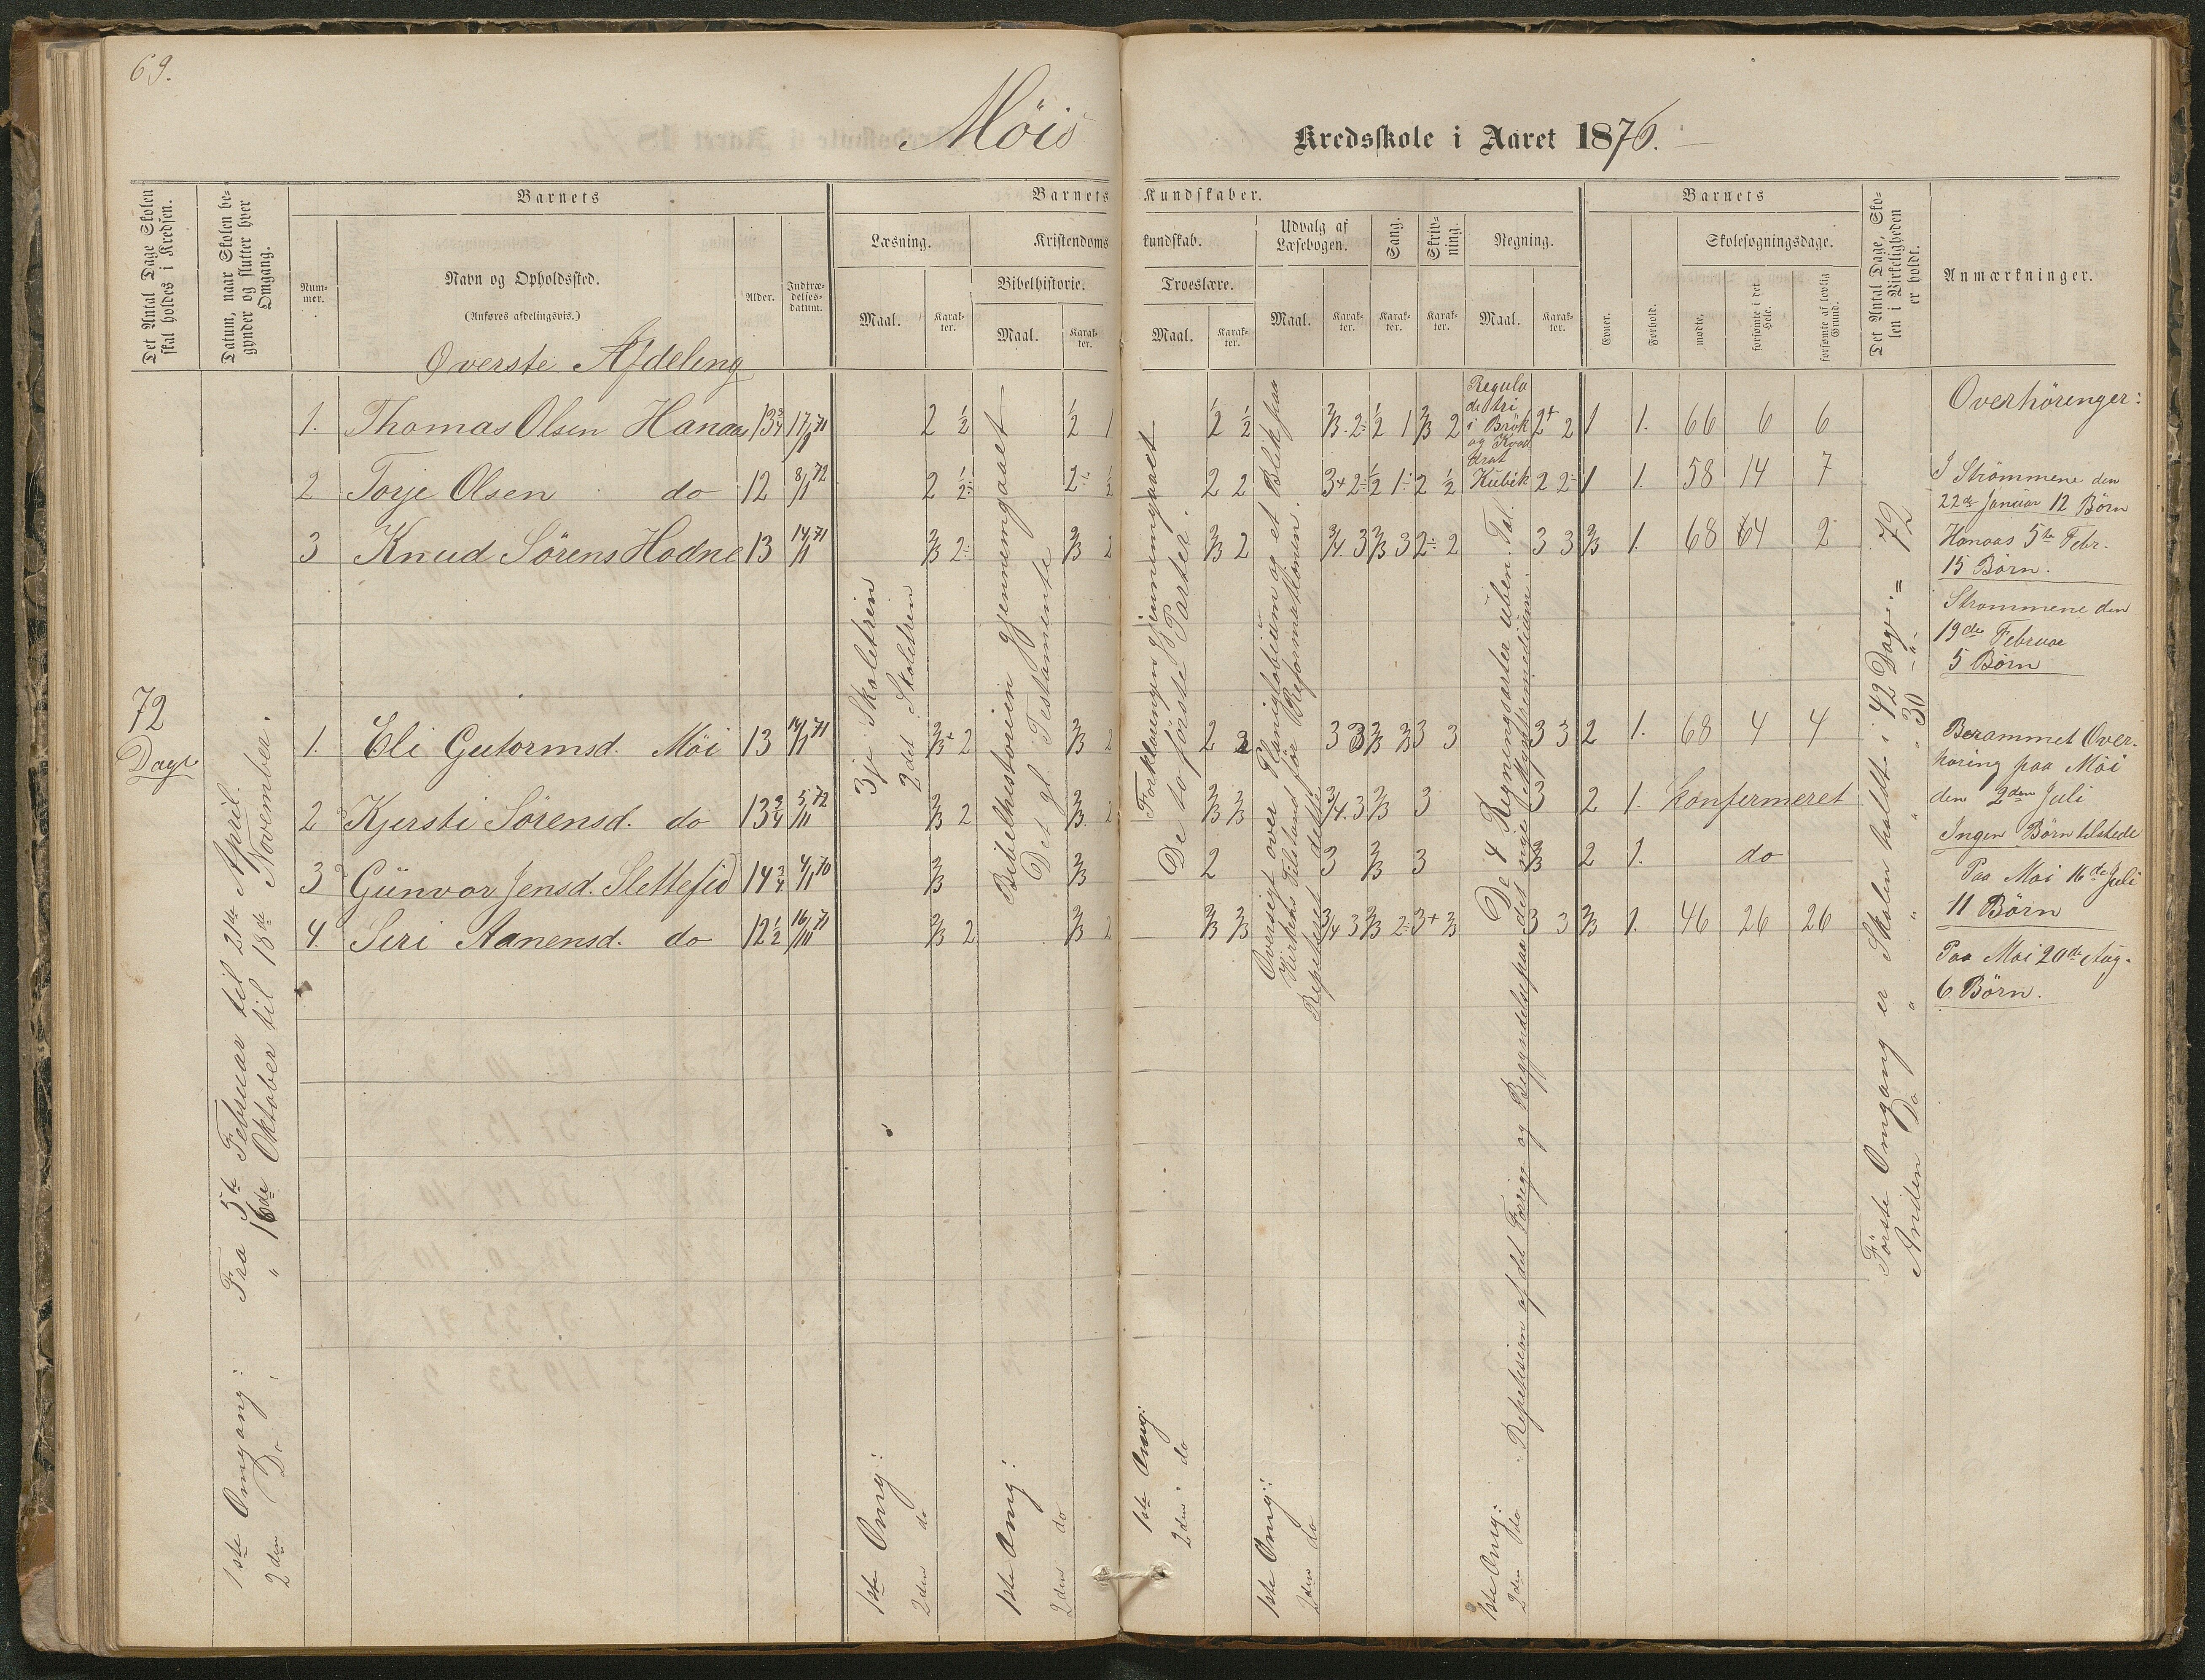 69.
Möis Kredsskole i Aaret 1876.
Det Antal Dage Skolen skal holdes i Kredsen.
Datum, naar Skolen begynder og slutter hver Omgang.
Barnets
Nummer.
Navn og Opholdssted.
(Anføres afdelingsvis.)
Alder.
Indtrædelsesdatum.
Barnets Kundskaber.
Læsning.
Maal.
Karakter.
Kristendomskundskab.
Bibelhistorie.
Maal.
Karakter.
Troeslære.
Maal.
Karakter.
Udvalg af Læsebogen.
Maal.
Karakter.
Sang.
Karakter.
Skrivning.
Karakter.
Regning.
Maal.
Karakter.
Barnets
Evner.
Forhold.
Skolesøgningsdage.
mødte,
forsømte i det Hele.
forsømte af lovlig Grund.
Det Antal Dage, Skolen i Virkeligheden er holdt.
Anmærkninger.
Overste Afdeling
1. Thomas Olsen Hanaas 13 3/4 17/9 71 2 1/2 1/2 1 1/2 1/2 2/3. 2÷ 1/2 1 2/3 2 2+ 2 1 1. 66 6 6
2 Torje Olsen do 12 8/1 72 2 1/2÷ 2÷ 1/2 2 2 3+ 2÷ 1/2 1÷ 2 1/2 2 2÷ 1 1. 58 14 7
3 Knud Sörens Hodne 13 14/1 71 2/3 2÷ 2/3 2 2/3 2 3/4 3 2/3 3 2÷ 2 3 3 2/3 1. 68 4 2
1. Eli Gutormsd. Möi 13 14/1 71 2/3+ 2 2/3 2 2 3 3 2/3 2/3 3 3 3 3 2 1. 68 4 4
2 Kjersti Sörensd. do 13 3/4 5/11 72 2/3 2 2/3. 2 2/3 2/3 3/4. 3 2/3 3 3 2 1. konfermeret
3 Günvor Jensd. Slettefid 14 3/4 4/1 70 2/3 2/3 2 3 2/3 3 3 2 1. do
4. Siri Aanensd. do 12 1/2 16/11 71 2/3 2 2/3 2 2/3 2/3 3/4 3 2/3 2÷ 3+ 2/3 3 3 2/3 1. 46 26 26
72
Dage
1ste Omgang: Fra 5te Februar til 21de April.
2den Do " 16de Oktober til 18de November.
1ste Omg: 3je Skoletrin
2den do 2det Skoletrin
1ste Omg: Bibelhistorien gjennemgaaet
2den do Det gl. Testamente
1ste Omg: Forklaringen gjennemgaaet
2den do De to første Parter.
1ste Omg: Oversigt over Planiglobium og et Blik paa
Kirkens Tilstand før Reformationen.
2den do Repeteret dette
Regula
de tri
i Brök
og Kvad
drat
Kubik
1ste Omg: De 4 Regningsarter i uben. Tal.
2den do Repetision af det Forrige og Begyndelse paa det
Første Omgang er Skolen holdt i 42 Dage. = 72
Anden Do " " " 30 -"-
Overhörenger:
I Strömmene den
22de Januar 12 Börn
Hanaas 5te Febr.
15 Börn.
Strommene den
19de Februar
5 Börn
Berammet Over-
höring paa Möi
den 2den Juli
Ingen Börn tilstede
Paa Möi 16de Juli
11 Börn
Paa Möi 20de Aug.
6 Börn.